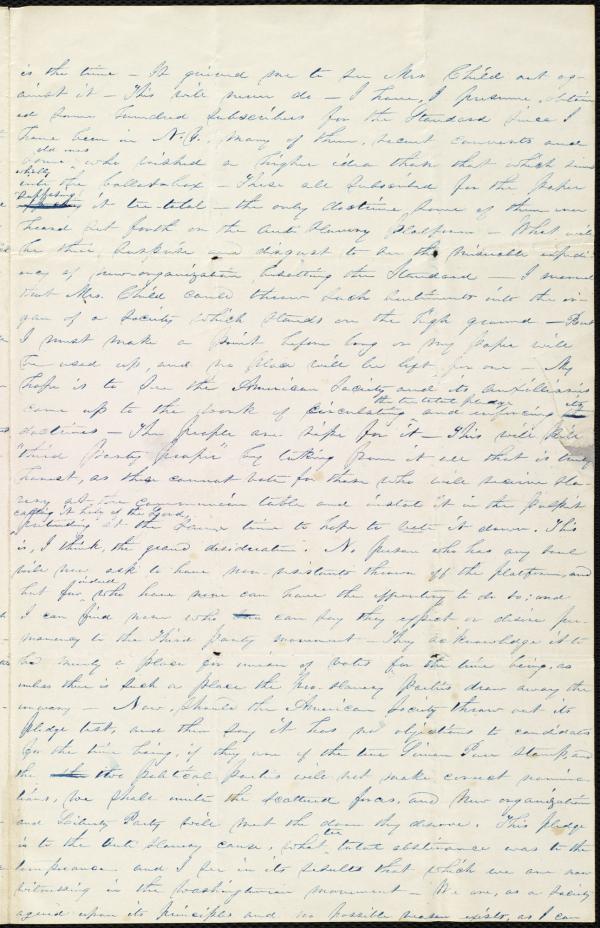 is the time – It grieved me to see Mrs. Child out ag-
ainst it – This will never do – I have, I presume, obtain
ed some hundred subscribers for the Standard since I
have been in N.Y., many of them, recent converts and
old ones
who wished a higher idea than that which
wholly
into the ballot-box – These all subscribed for the paper
supposing
it tee-total – the only doctrine some of them ever
heard put forth on the Anti Slavery Platform – What will
be their surprise and disgust to see the miserable expedi
ency of new-organization besetting the Standard – I marvel
that Mrs. Child could throw such sentiments into the or-
gan of a Society which stands on the high ground – But
I must make a point before long or my paper will
be used up, and no place will be left for one – My
hope is to see the American Society and its auxilliaries
the tee total pledge
come up to the work of circulating and enforcing its
doctrines – The people are ripe for it – This will kill
"third Party proper" by taking from it all that is truly
honest, as these cannot vote for those who will receive sla-
very at the communion table and instal it in the pulpit
calling it holy of the Lord,
pretending at the same time to hope to vote it down. This
is, I think, the grand desideratum. No person who has any soul
will now ask to have non-resistants thrown off the platform, and
indeed
but few who have none can have the effrontery to do so; and
I can find none who can say they expect or desire per-
manency to the Third party movement – They acknowledge it to
be merely a place for union of votes for the time being, as
unless there is such a place the pro-slavery parties draw away the
unwary – Now, should the American Society throw out its
pledge test, and then say it has no objections to candidates
for the time being, if they are of the true stamp, and
the two political parties will not make correct nomina-
tions, we shall unite the scattered forces, and New organization
and Liberty Party will meet the doom they deserve. This pledge
tee
is to the Anti Slavery cause, what total abstinence was to the
temperance and I see in its results that which we are now
witnessing in the Washingtonian movement – We are, as a Society
agreed upon its principles and no possible reason exists, as I can